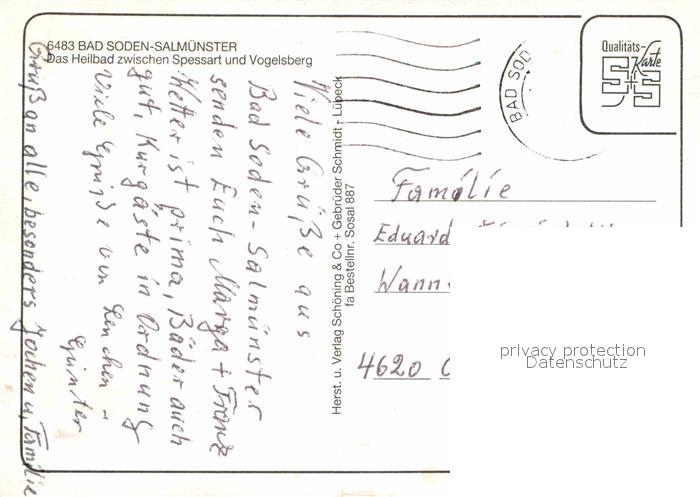 6483 BAD SODEN-SALMÜNSTER
Das Heilbad zwischen Spessart und Vogelsberg
Viele Grüße aus
Bad Soden-Salmünster
senden Euch Marga + Franz
Wetter ist prima, Bäder auch
gut, Kurgäste in Ordnung
Viele Grüße von Lenchen u.
Günter
Gruß an alle, besonders Jochen u. Familie
Herst. u. Verlag Schöning & Co + Gebrüder Schmidt - Lübeck
fa Bestellnr. Sosal 887
BAD SOD
Qualitäts-
Karte
S+S
Familie
Eduard
Wann
4620
privacy protection
Datenschutz